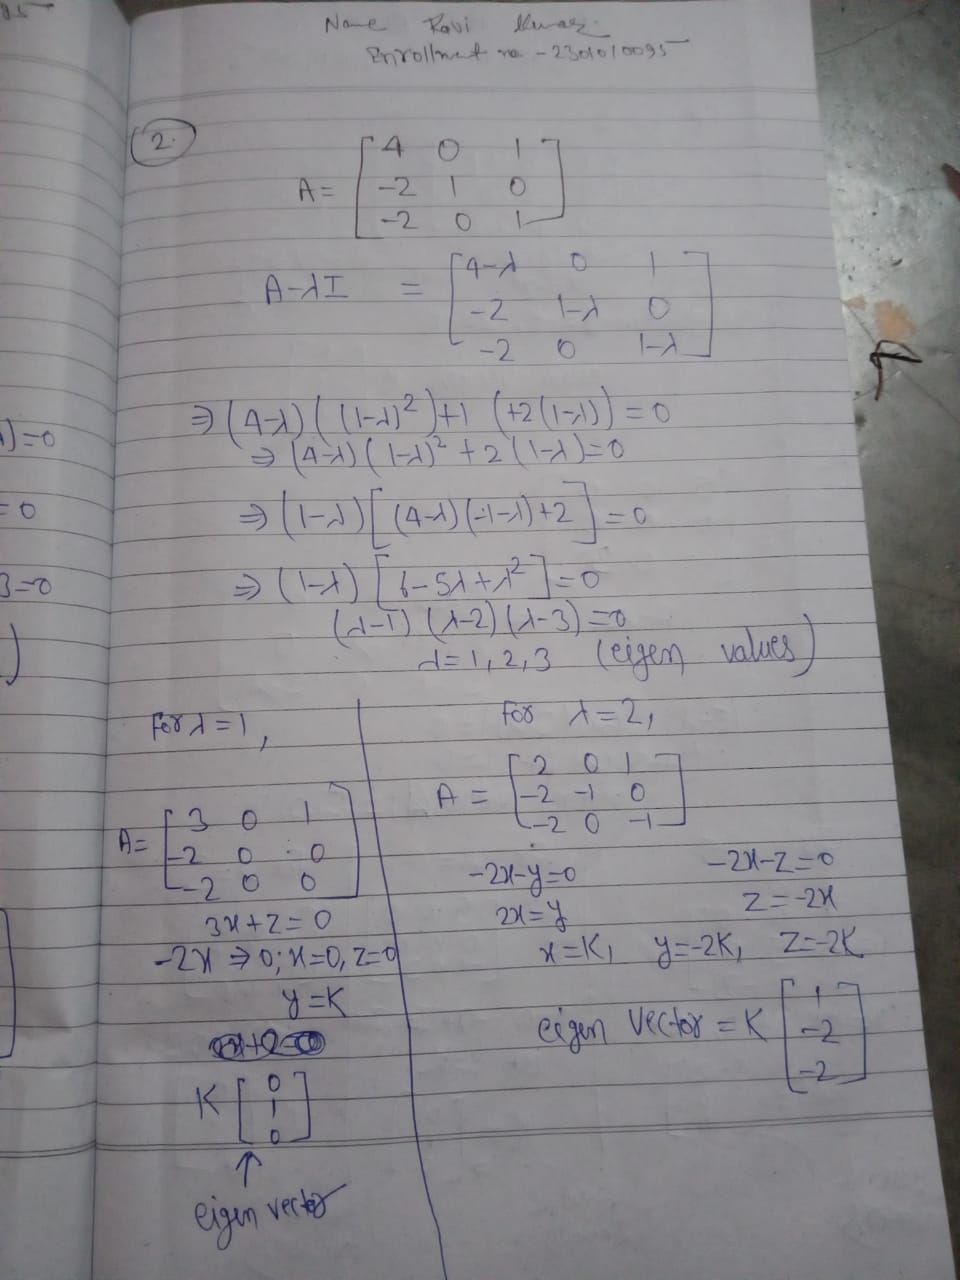 95
Name Ravi Kumar
Enrollment no - 2301010095
2.
A = [ 4 0 1
-2 1 0
-2 0 1 ]
A-λI = [ 4-λ 0 1
-2 1-λ 0
-2 0 1-λ ]
⇒ (4-λ) ( (1-λ)²)+1 (+2(1-λ)) = 0
⇒ (4-λ) (1-λ)² + 2 (1-λ)=0
⇒ (1-λ) [ (4-λ)(-1-λ)+2 ] = 0
⇒ (1-λ) [ 6-5λ+λ² ] = 0
(λ-1) (λ-2) (λ-3) = 0
λ = 1, 2, 3 (eigen values)
)=0
=0
3=0
For λ = 1,
A = [ 3 0 1
-2 0 0
-2 0 0 ]
3x+z = 0
-2x ⇒ 0; x=0, z=0
y = K
K [ 0
1
0 ]
↑
eigen vector
For λ = 2,
A = [ 2 0 1
-2 -1 0
-2 0 -1 ]
-2x-y=0 -2x-z=0
2x=y z=-2x
x=K, y=-2K, z=-2K
eigen vector = K [ 1
-2
-2 ]